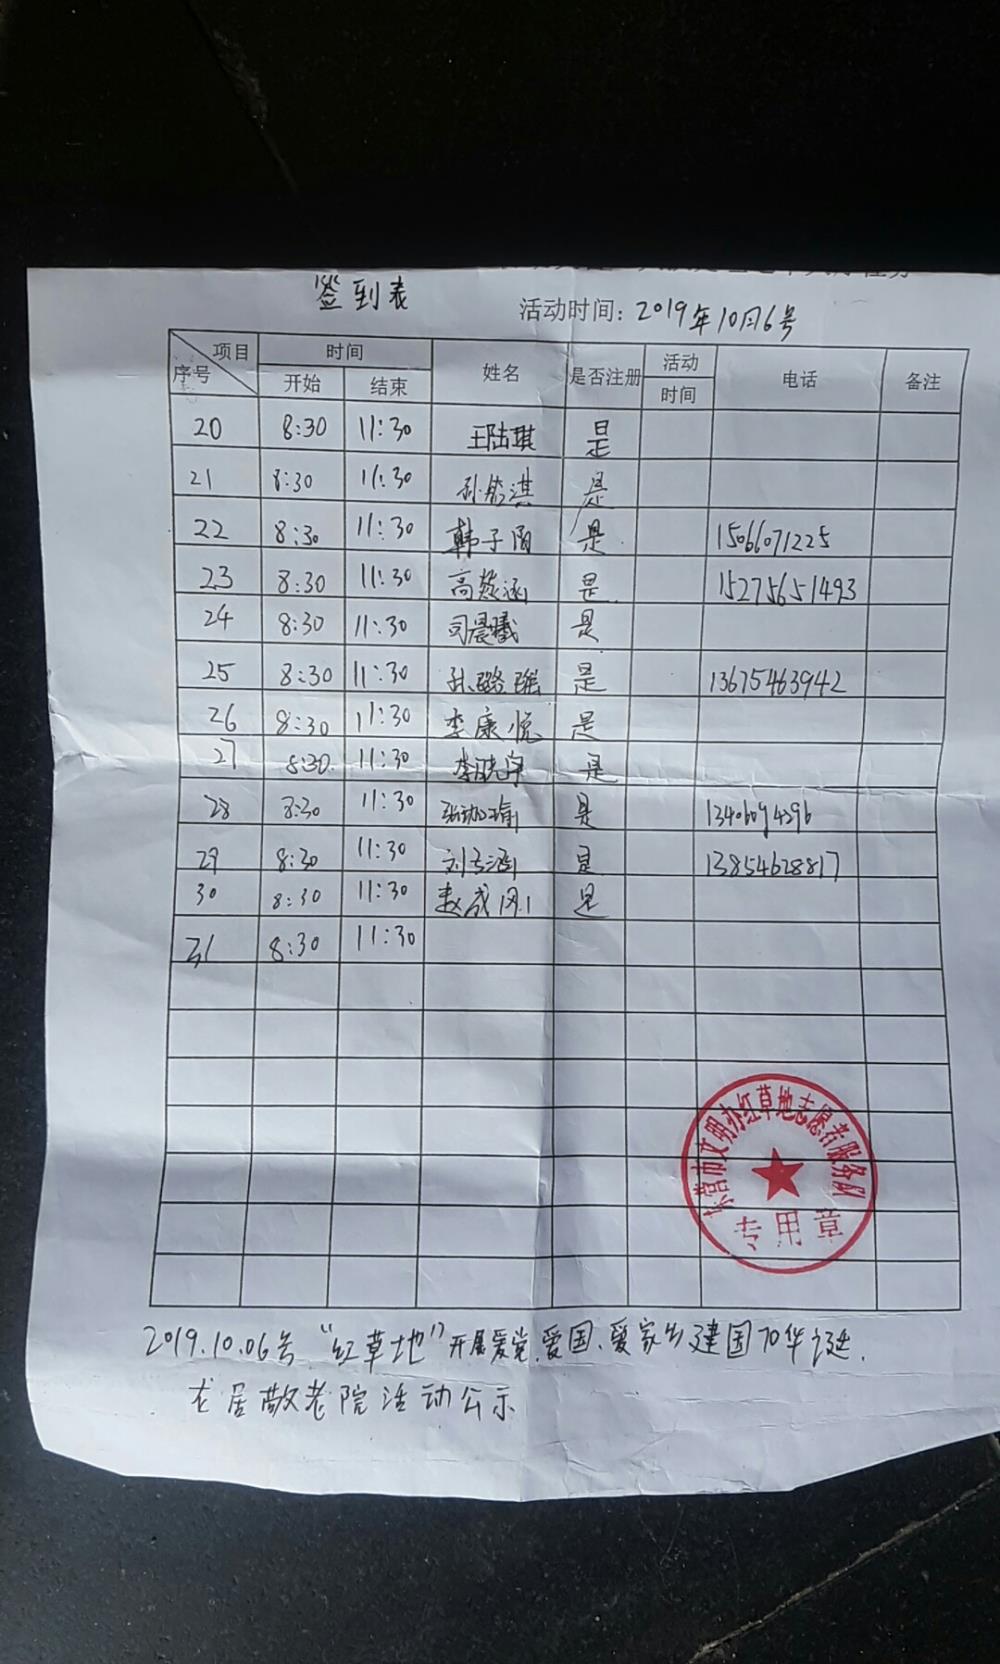 签到表 活动时间：2019年10月6号
项目 序号 时间 姓名 是否注册 活动 电话 备注
开始 结束 时间
20 8:30 11:30 王陆琪 是
21 8:30 11:30 孙 淇 是
22 8:30 11:30 韩子 是 15066071225
23 8:30 11:30 高 涵 是 15275651493
24 8:30 11:30 司晨曦 是
25 8:30 11:30 孙璐瑶 是 13675463942
26 8:30 11:30 李康悦 是
27 8:30 11:30 李晓宇 是
28 8:30 11:30 张珈瑜 是
29 8:30 11:30 刘 涵 是 13854628817
30 8:30 11:30 赵成刚 是
31 8:30 11:30
东营市文明办红草地志愿者服务队
专用章
2019.10.06号“红草地”开展爱党、爱国、爱家乡建国70华诞.
龙居敬老院活动公示